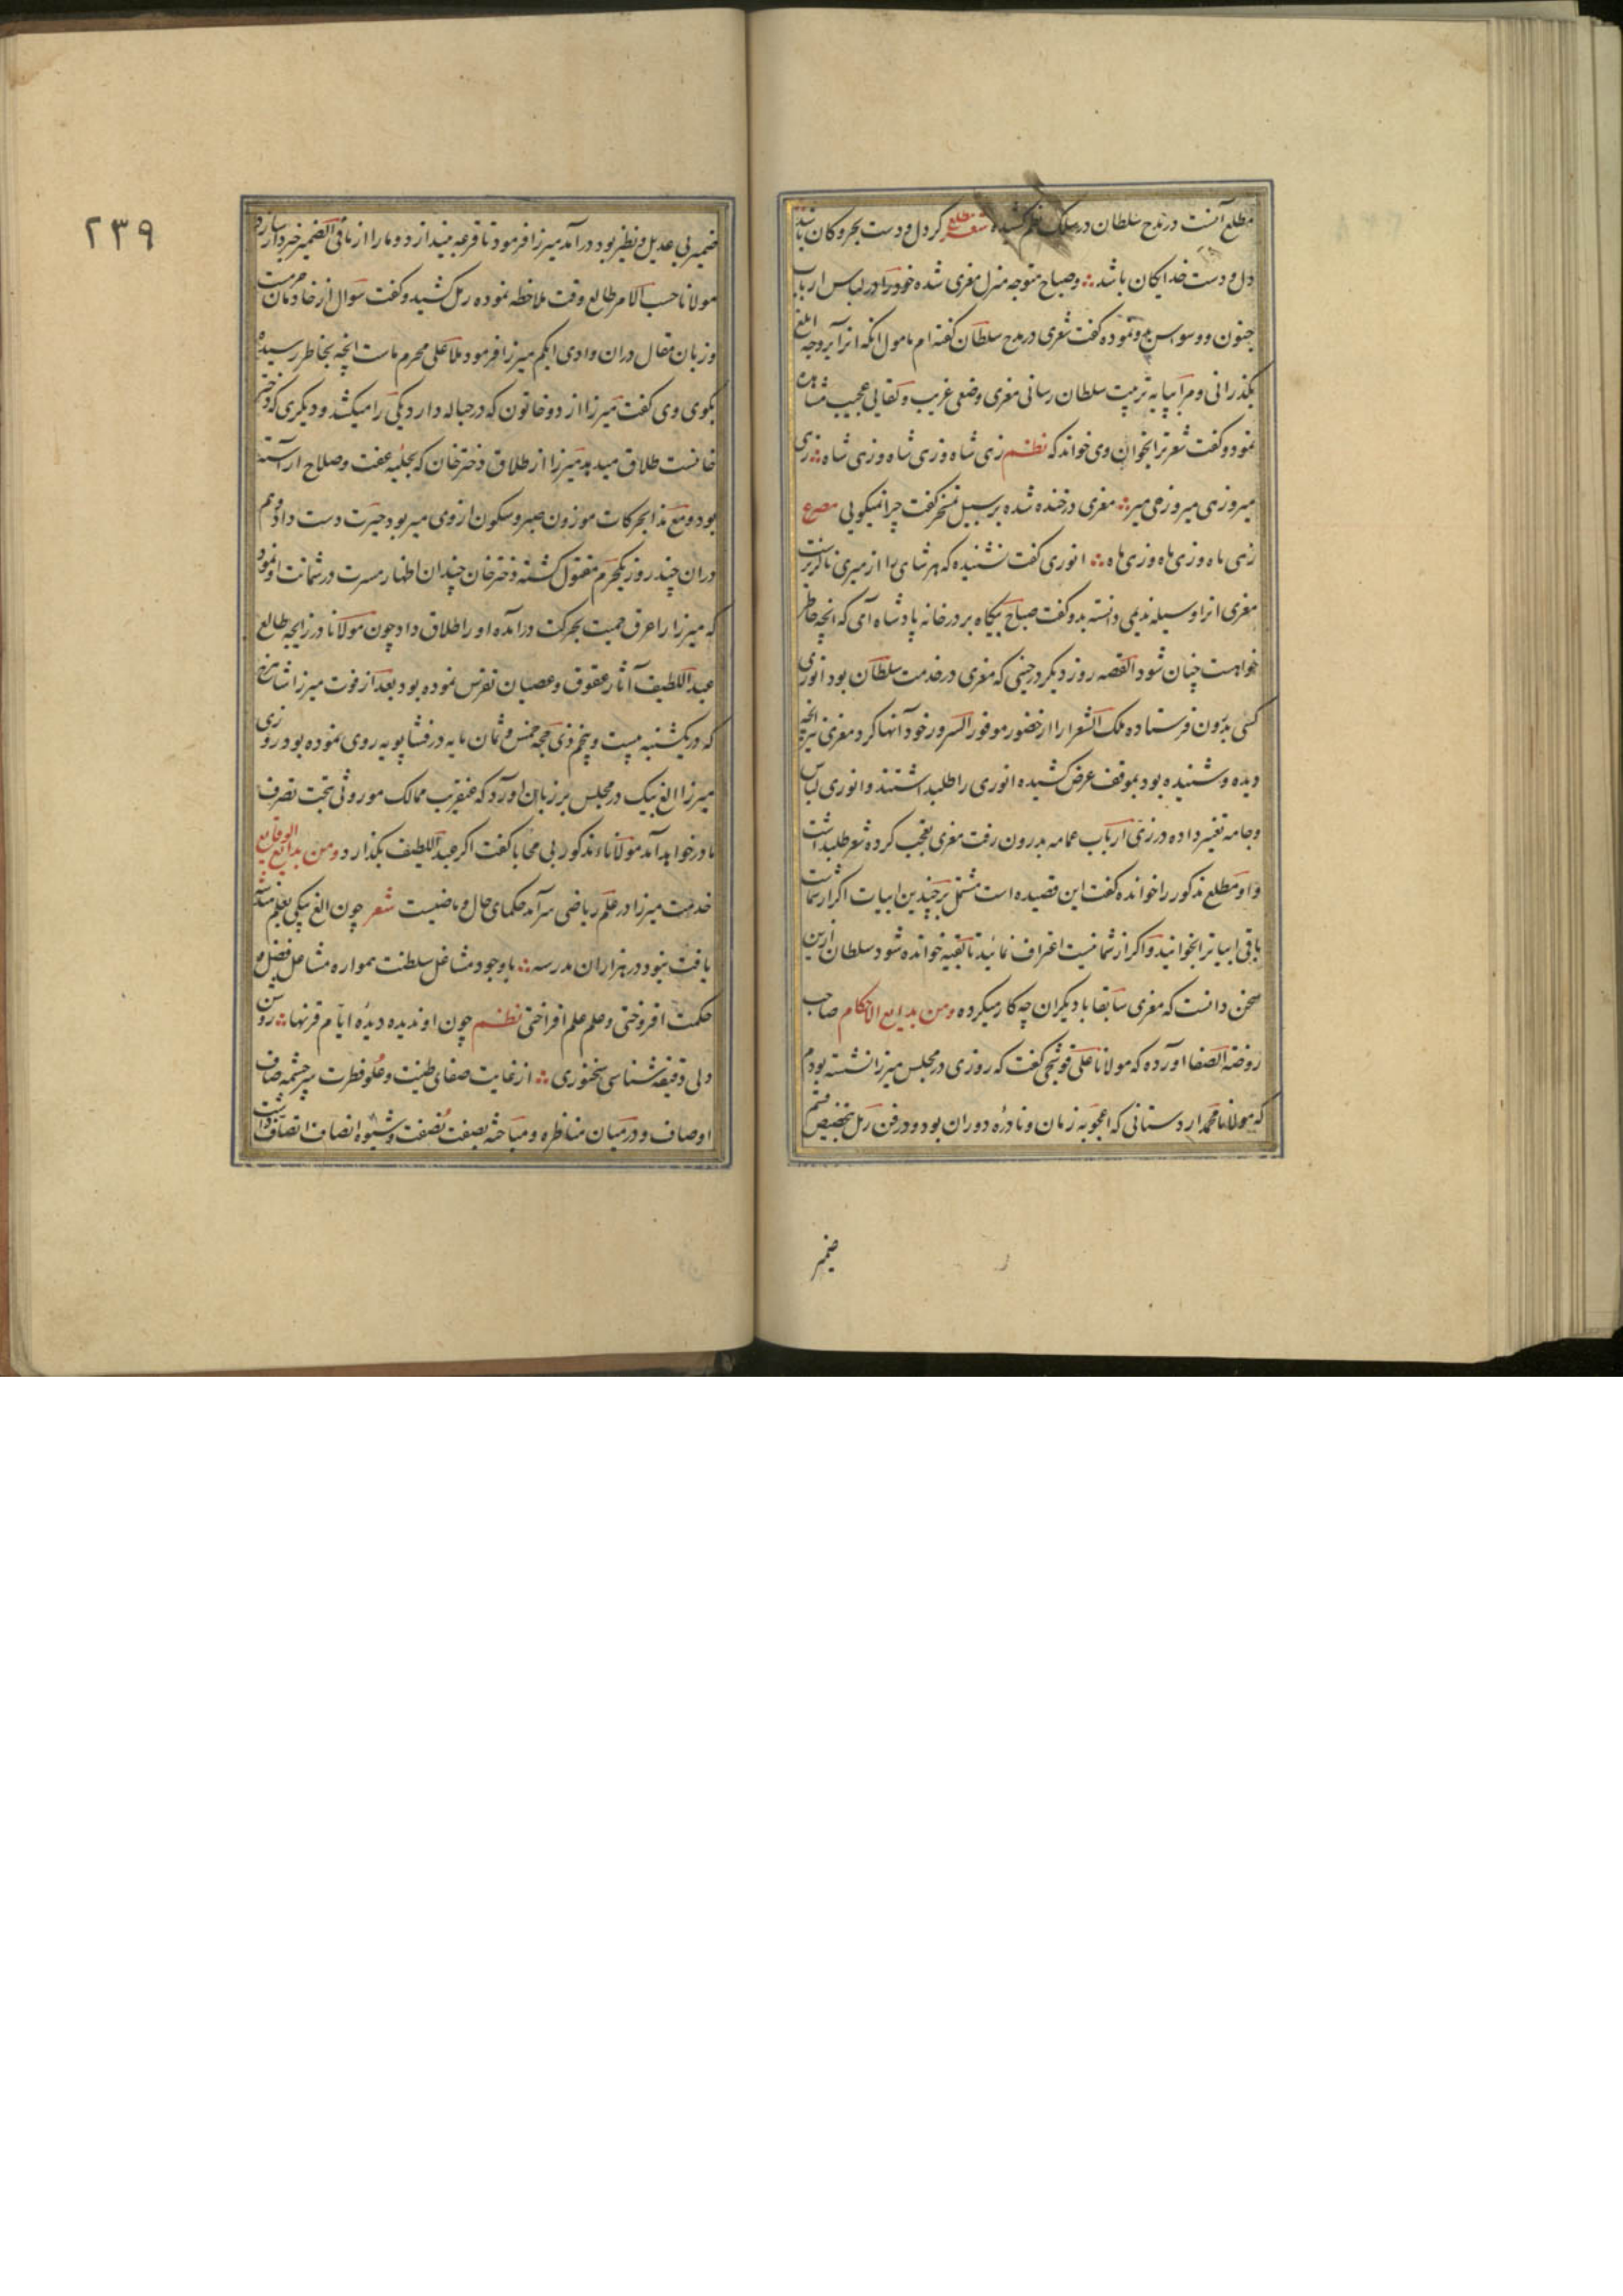 مطلع آنست در مدح سلطان در سلک نظم کشیده شعر مطلع گر دل و دست بحر و کان باشد
دل و دست خدایکان باشد ؞ و صباح متوجه منزل معزی شده خود را در لباس ارباب
جنون و وسوس بدو نموده گفت شعری در مدح سلطان گفته‌ام مامول انکه انرا بر وجه ابلغ
بگذرانی و مرا بپایه تربیت سلطان رسانی معزی وضعی غریب و لقایی عجیب مشاهده
نمود و گفت شعر ترا بخوان وی خواند که نظم زهی شاه و زهی شاه و زهی شاه ؞ زهی
میر و زهی میر و زهی میر ؞ معزی در خنده شده بر سبیل تمسخر گفت چرا نمیکویی مصرع
زهی ماه و زهی ماه و زهی ماه ؞ انوری گفت نشنیده که هر شاهی را از میری ناگزیرست
معزی انرا وسیله ندیمی دانسته بدو گفت صباح پیگاه بر درخانه پادشاه آی که انچه خاطر
خواهست چنان شود القصه روز دیگر در حینی که معزی در خدمت سلطان بود انوری
کسی بدرون فرستاده ملک الشعرا را از حضور موفور السرور خود آنها کرد معزی نیز انچه
دیده و شنیده بود بموقف عرض کشیده انوری را طلب داشتند و انوری لباس
و جامه تغییر داده در زی ارباب عمامه بدرون رفت معزی تعجب کرده شعر طلب داشت
و او مطلع مذکور را خوانده گفت این قصیده است مشتمل بر چندین ابیات اگر از شماست
باقی ابیاترا بخوانید و اگر از شما نیست اعتراف نمائید تا بقیه خوانده شود سلطان ازین
سخن دانست که معزی سابقا با دیگران چه کار میکرده ومن بدایع الاحکام صاحب
روضة الصفا اورده که مولانا علی قوشجی گفت که روزی در مجلس میرزا نشسته بودم
که مولانا محمد اردستانی که اعجوبه زمان و نادرهٔ دوران بود و در فن رمل بتخصیص قسم
ضمیر
۲۳۹
ضمیر بی عدیل و نظیر بود در آمد میرزا فرمود تا قرعه بیندازد و ما را از مافی الضمیر خبردار سازد
مولانا حسب الامر طالع وقت ملاحظه نموده رمل کشید و گفت سوال از خادمان حرمست
و زبان مقال دران وادی ابکم میرزا فرمود ملا علی محرم ماست انچه بخاطر رسیده
بگوی وی گفت میرزا از دو خاتون که در حباله دارد یکی را میکشد و دیگری که دختر
خانست طلاق میدهد میرزا از طلاق دختر خان که بحلیه عفت و صلاح اراسته
بود و مع هذا بحرکات موزون صبر و سکون از وی میربود حیرت دست داد و هم
دران چند روز یکحرم مقتول گشته دختر خان چندان اظهار مسرت در شماتت او نمود
که میرزا را عرق حمیت بحرکت درآمده او را طلاق داد چون مولانا در زایچه طالع
عبد اللطیف آثار عقوق و عصیان تفرس نموده بود بعد از فوت میرزا شاهرخ
که در یکشنبه بیست و پنجم ذی حجه خمس و ثمان مایه در فشاپویه روی نموده بود روزی
میرزا الغ بیک در مجلس بر زبان اورد که عنقریب ممالک موروثی تحت تصرف
ما در خواهد آمد مولاناء مذکور بی محابا گفت اگر عبد اللطیف بگذارد ومن بدایع الوقایع
خدمت میرزا در علم ریاضی سرآمد حکمای حال و ماضیست شعر چون الغ بیکی بعلم هندسه
یافت نبود در هزاران مدرسه ؞ باوجود مشاغل سلطنت همواره مشاعل فضل و
حکمت افروختی و علم علم افراختی نظم چون او ندیده دیدهٔ ایام قرنها ؞ روشن
دلی دقیقه شناسی سخنوری ؞ از غایت صفای طینت و علو فطرت سرچشمه صاف
اوصاف و در میان مناظره و مباحثه بصیفت نصفت و شیوه انصاف اتصاف داشت